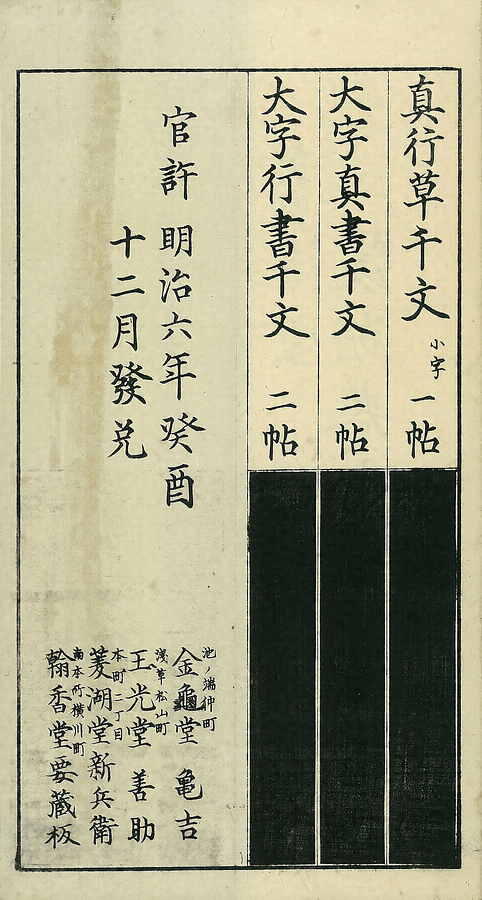 真行草千文 小字 一帖
大字真書千文 二帖
大字行書千文 二帖
官許 明治六年癸酉
十二月發兌
池ノ端仲町
金龜堂 亀吉
浅草松山町
玉光堂 善助
本町二丁目
菱湖堂新兵衛
南本所横川町
翰香堂要蔵板